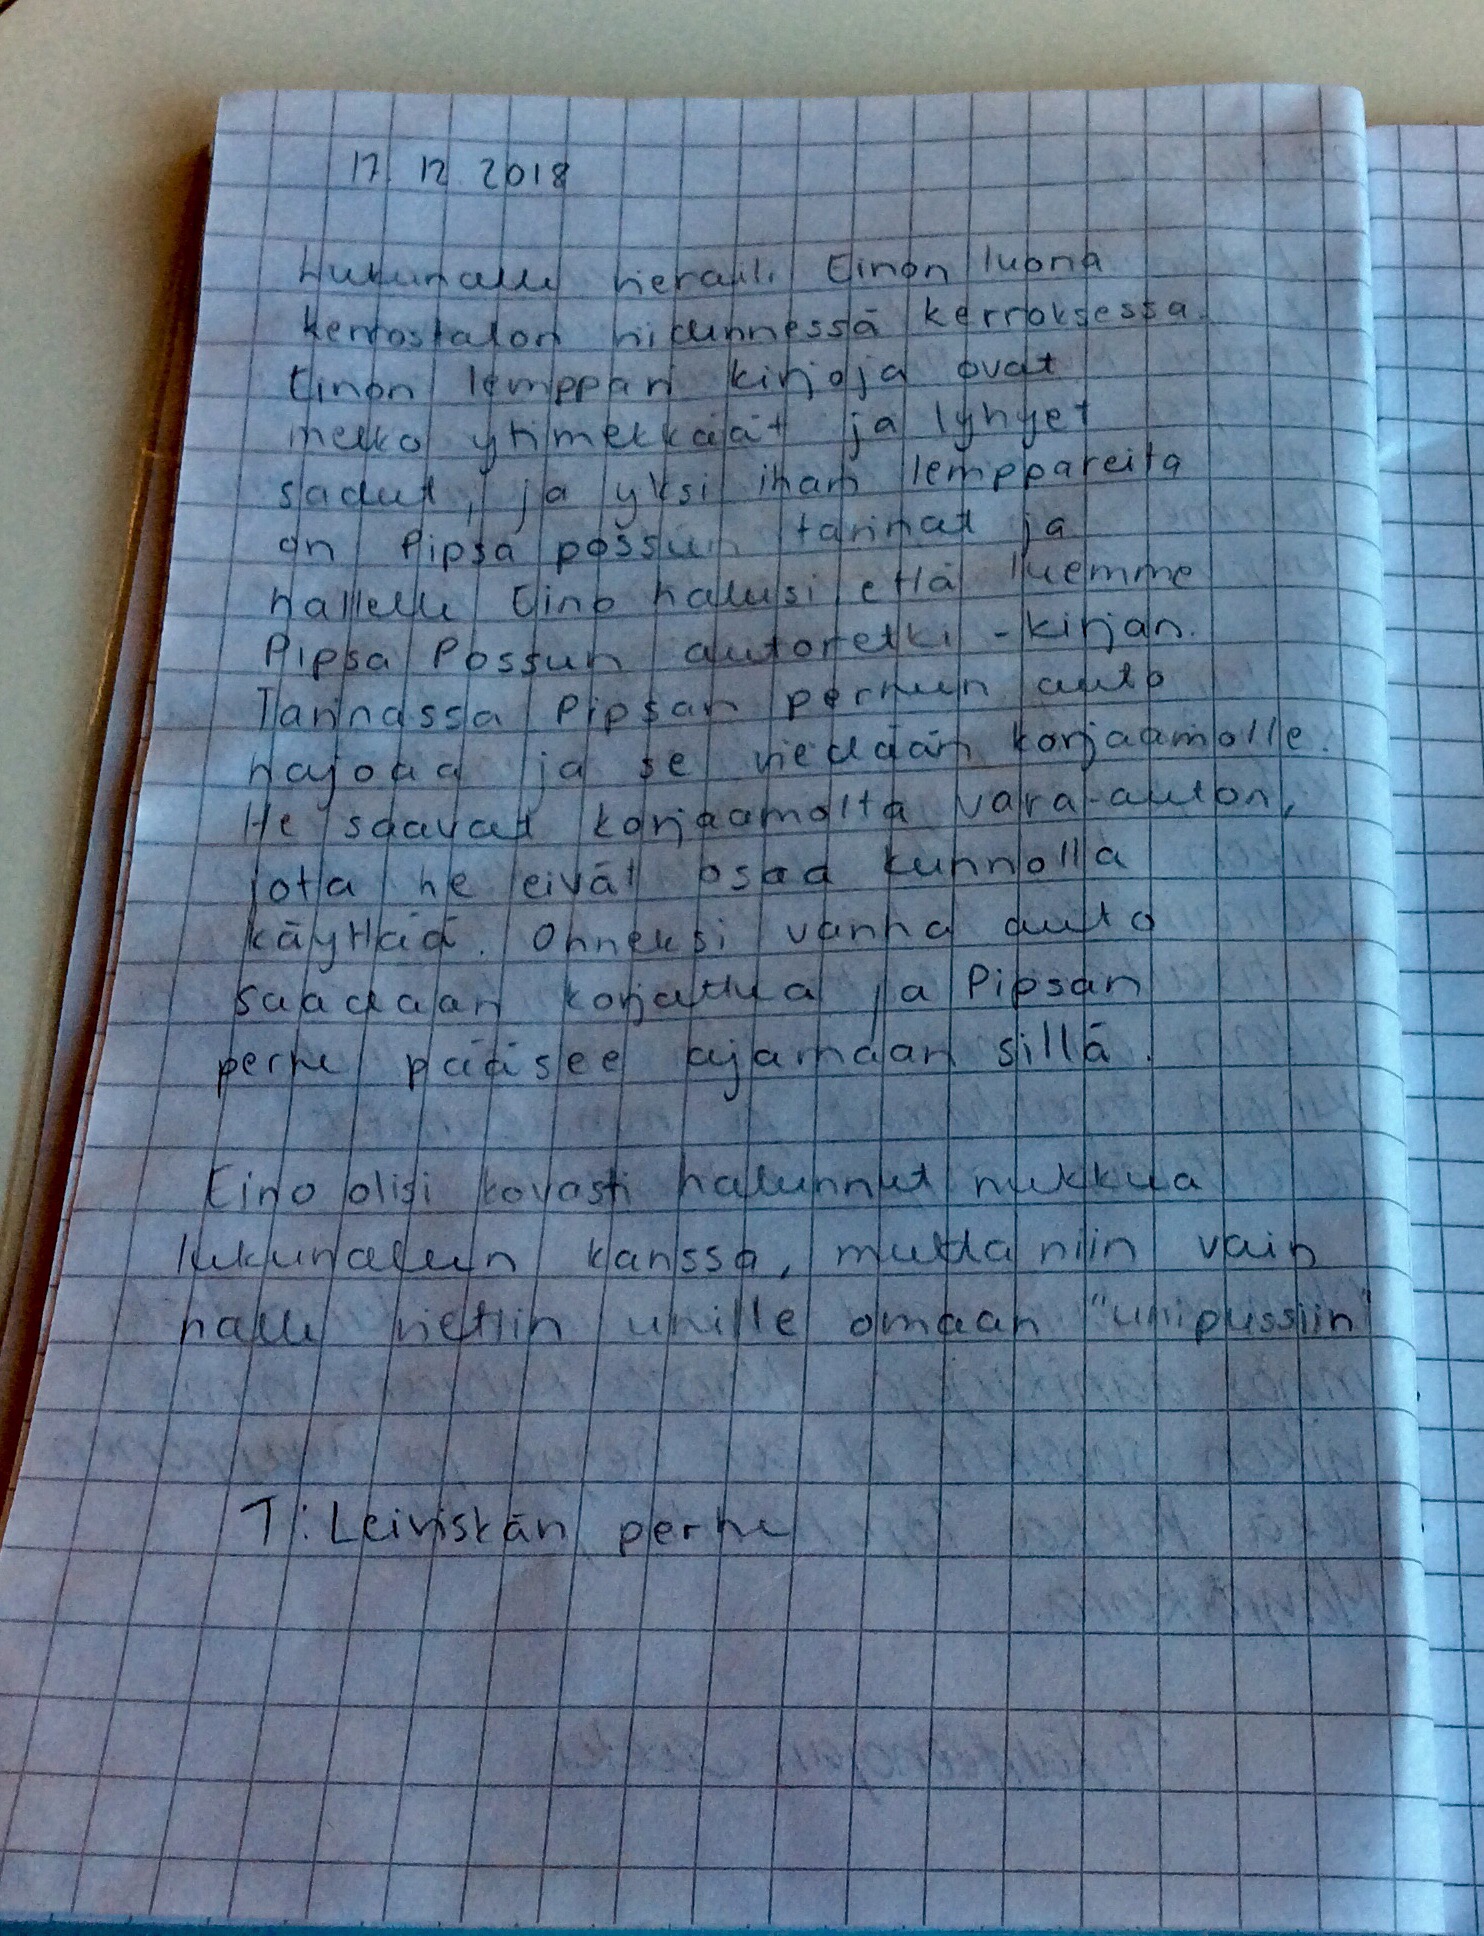 17.12.2018
Lukunalle vieraili Einon luona
kerrostalon viidennessä kerroksessa.
Einon lempparikirjoja ovat
melko yhmekkäät ja lyhyet
sadut, ja yksi ihan lemppareita
on Pipsa possun tarinat ja
nallelle Eino halusi että luemme
Pipsa Possun autoretki -kirjan.
Tarinassa Pipsan perheen auto
hajoaa ja se viedään korjaamolle.
He saavat korjaamolta vara-auton,
jota he eivät osaa kunnolla
käyttää. Onneksi vanha auto
saadaan korjattua ja Pipsan
perhe pääsee ajamaan sillä.
Eino olisi kovasti halunnut nukkua
lukunallen kanssa, mutta niin vain
nalle vietiin unille omaan "unipussiin"
T: Leiviskän perhe